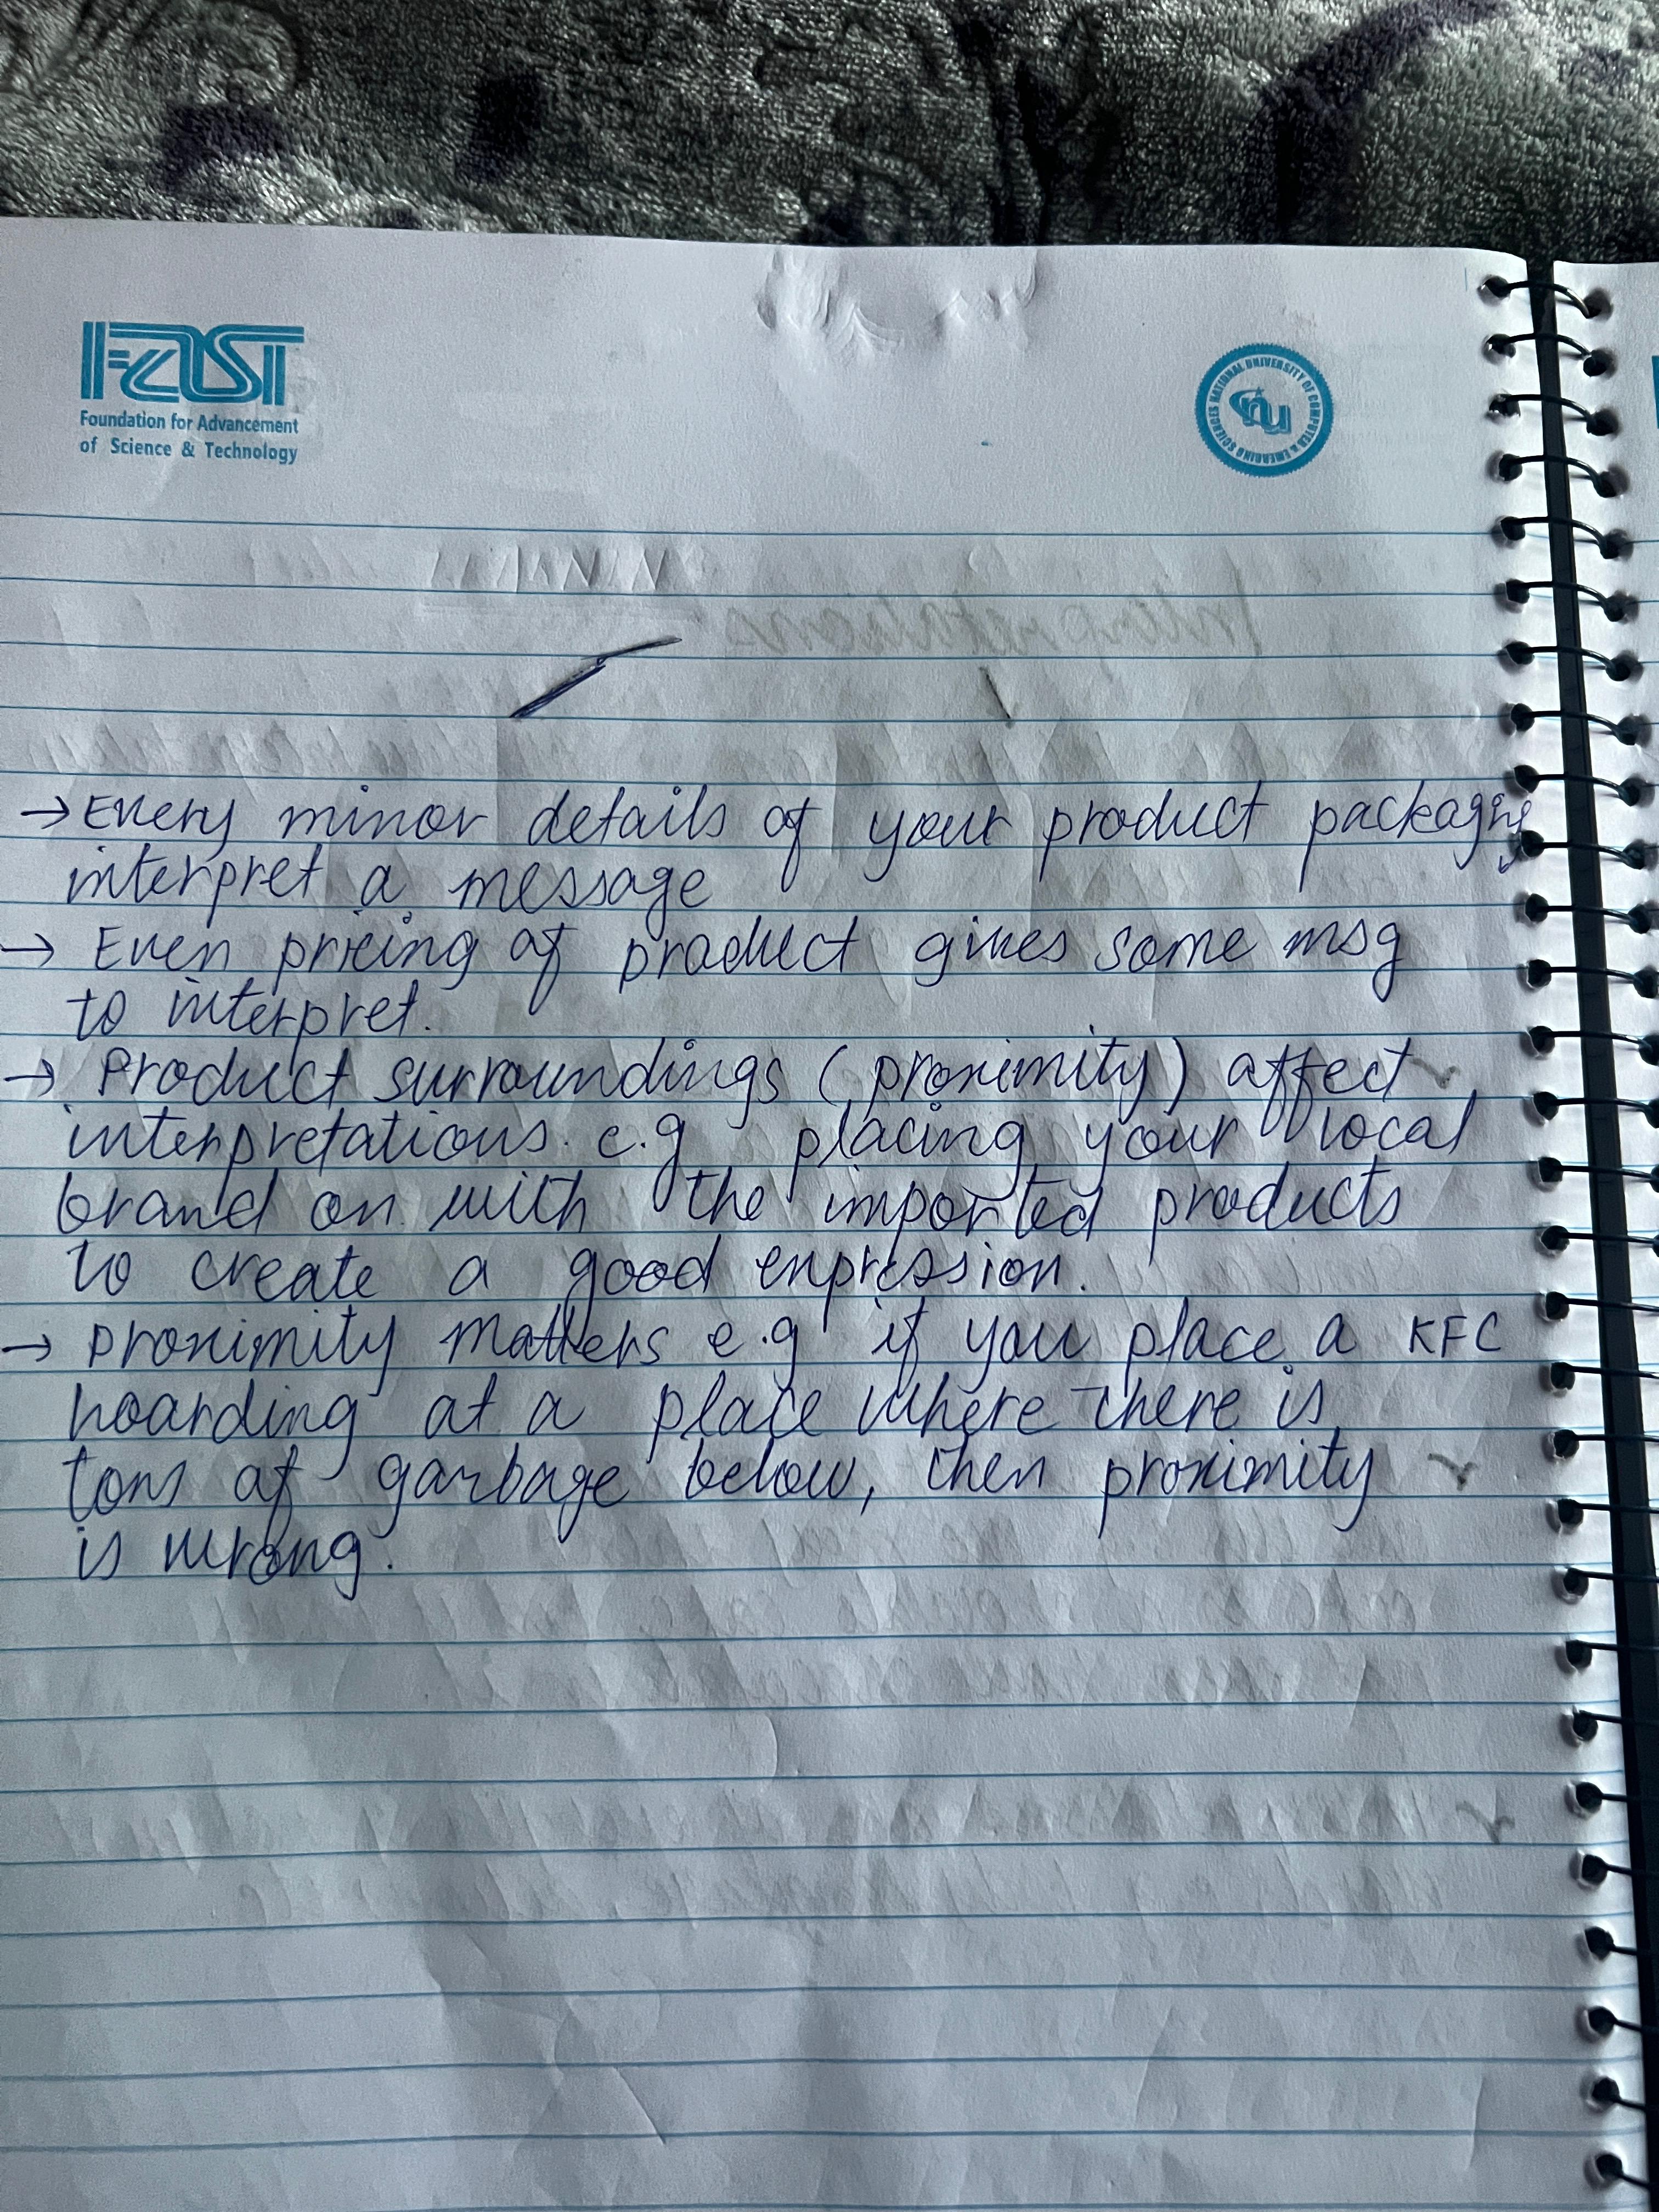 FAST
Foundation for Advancement
of Science & Technology
NATIONAL UNIVERSITY OF COMPUTER & EMERGING SCIENCES
nu
Interpretations
→ Every minor details of your product packaging
interpret a message
→ Even pricing of product gives some msg
to interpret.
→ Product surroundings (proximity) affect
interpretations. e.g placing your local
brand on with the imported products
to create a good expression.
→ Proximity matters e.g if you place a KFC
hoarding at a place where there is
tons of garbage below, then proximity
is wrong.